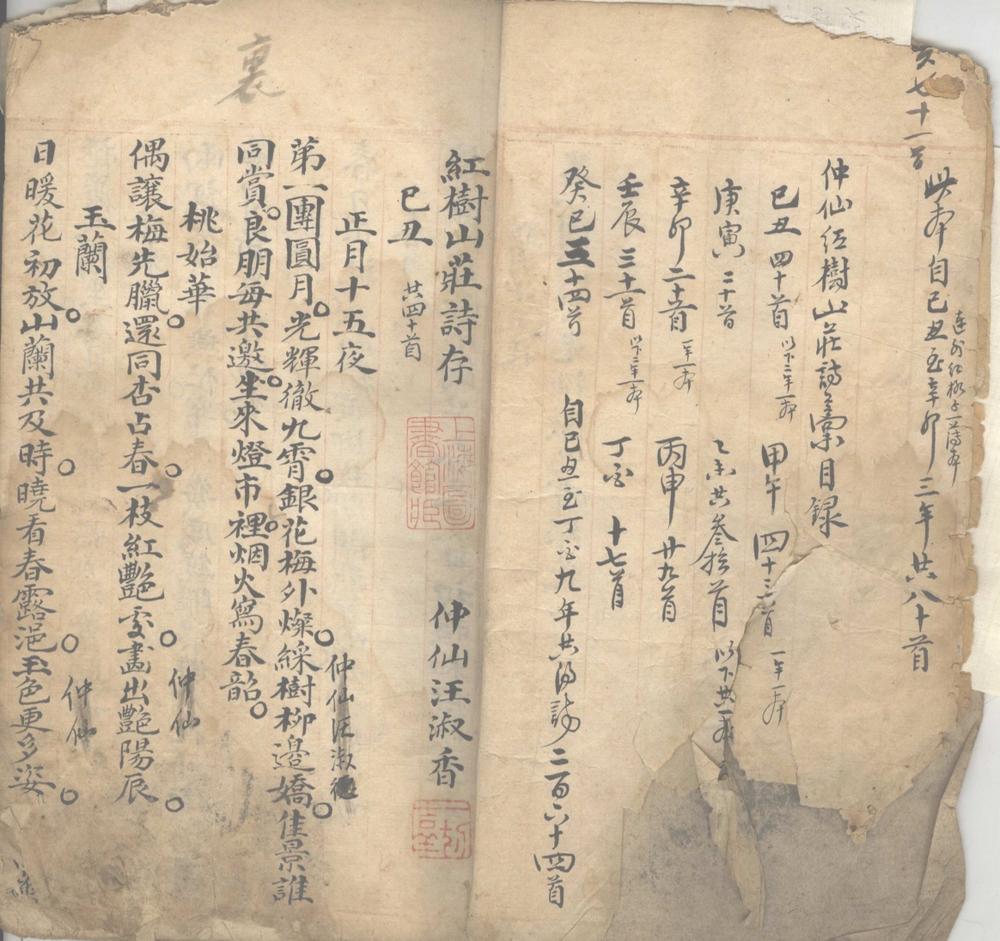 此本自己丑至辛卯三年共八十首
仲仙紅樹山莊詩稾目錄
己丑四十首 以下二年一本 甲午 四十三首 一年一本
庚寅 二十首 乙未共叁拾首 以下共一本
辛卯二十首 一年一本 丙申 廿九首
壬辰三十首 以下二年一本 丁酉 十七首
癸巳三十四首 自己丑至丁酉九年共得詩二百六十四首
紅樹山莊詩存 仲仙汪淑香
己丑 共四十首
上海圖書館藏
正月十五夜 仲仙汪淑
第一團圓月。光輝徹九霄。銀花梅外燦。綵樹柳邊嬌。佳景誰
同賞。良朋每共邀。生來燈市裡。烟火寫春韶。
桃始華 仲仙
偶讓梅先臘。還同杏占春。一枝紅艷處。畫出艷陽辰。
玉蘭 仲仙
日暖花初放。山蘭共及時。曉看春露浥。玉色更多姿。
裏